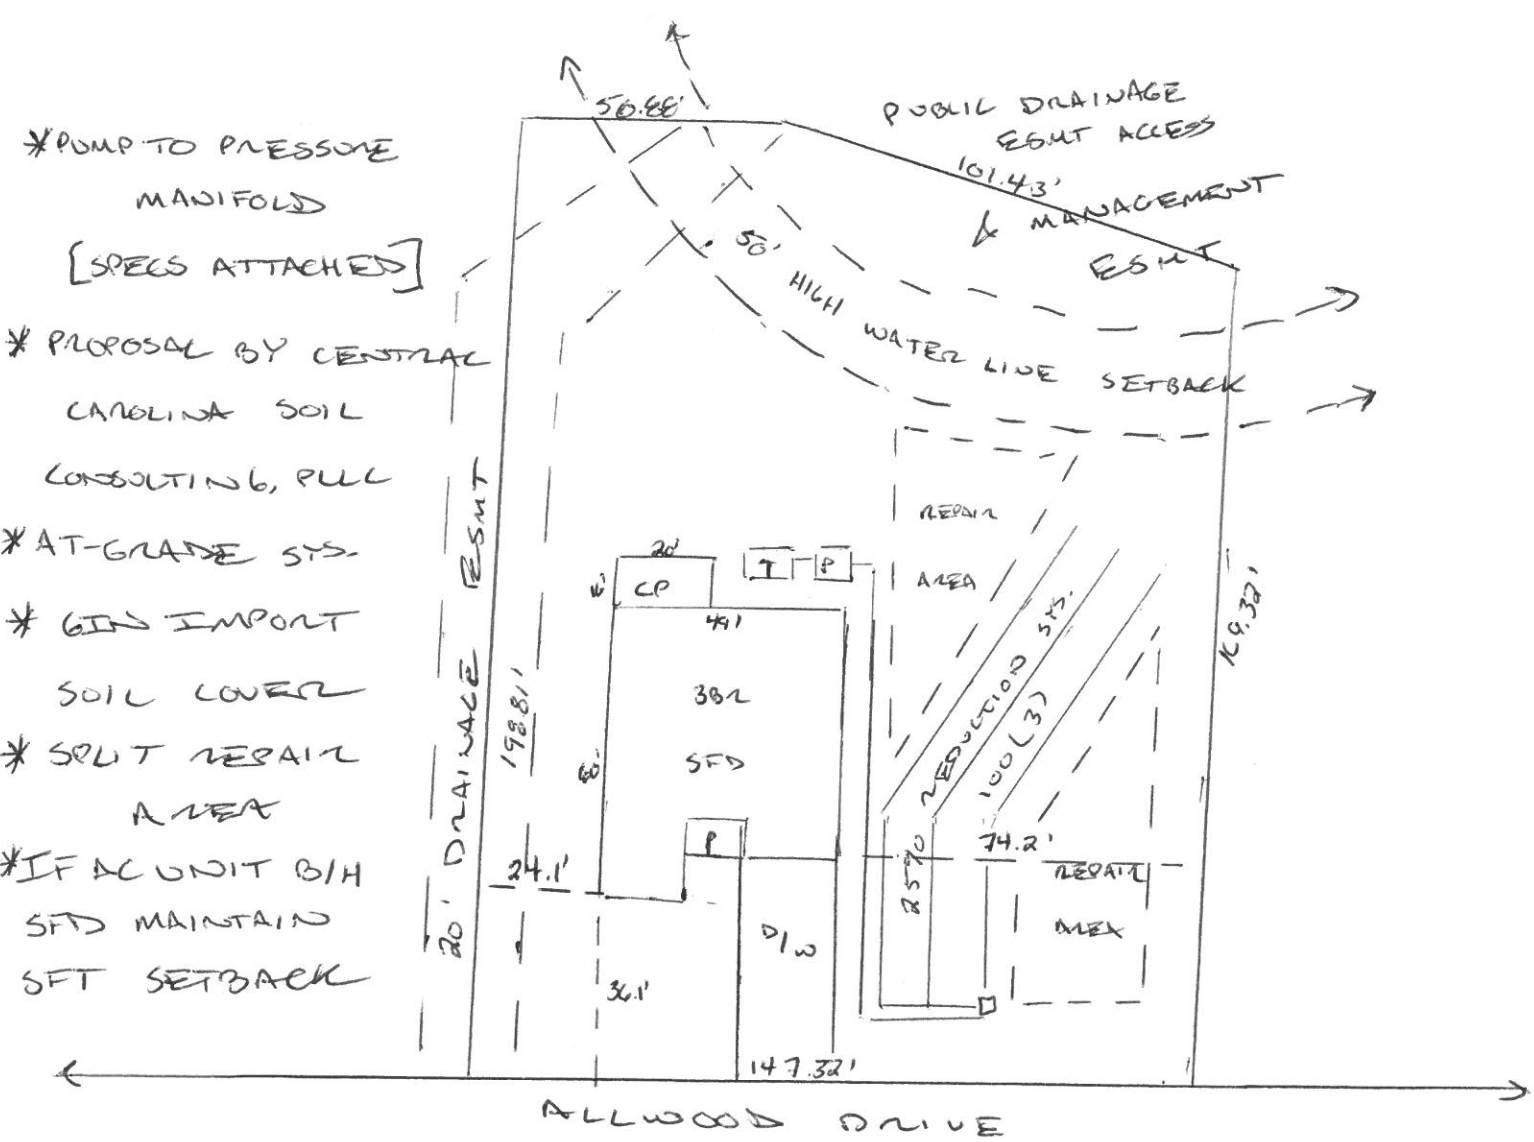 *PUMP TO PRESSURE
MANIFOLD
[SPECS ATTACHED]
* PROPOSAL BY CENTRAL
CAROLINA SOIL
CONSULTING, PLLC
*AT-GRADE SYS.
* 6IN IMPORT
SOIL COVER
* SPLIT REPAIR
AREA
*IF AC UNIT B/H
SFD MAINTAIN
5FT SETBACK
PUBLIC DRAINAGE
ESMT ACCESS
& MANAGEMENT
ESMT
101.43'
50' HIGH WATER LINE SETBACK
REPAIR
AREA
20'
CP
T
P
49'
3BR
SFD
P
D/W
20' DRAINAGE ESMT
198.81'
24.1'
36.1'
25% REDUCTION SYS.
100(3)
74.2'
REPAIR
AREA
169.32'
147.32'
ALLWOOD DRIVE